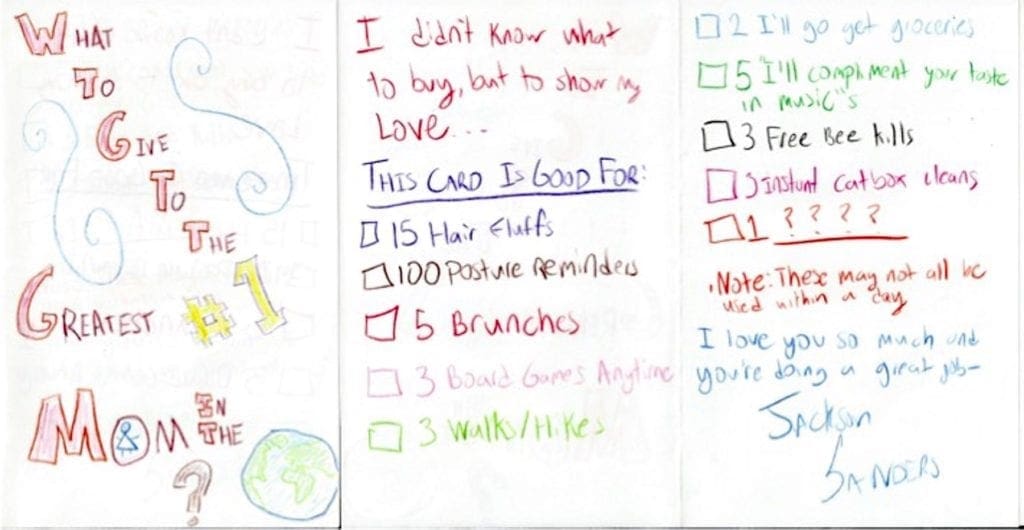 WHAT
TO
GIVE
TO
THE
GREATEST #1
MOM IN
THE
?
I didn't know what
to buy, but to show my
LOVE...
THIS CARD IS GOOD FOR:
15 Hair Fluffs
100 Posture Reminders
5 Brunches
3 Board Games Anytime
3 Walks/Hikes
2 I'll go get groceries
5 "I'll compliment your taste
in music"s
3 Free Bee kills
3 instant catbox cleans
1 ? ? ? ?
Note: These may not all be
used within a day
I love you so much and
you're doing a great job-
JACKSON
SANDERS